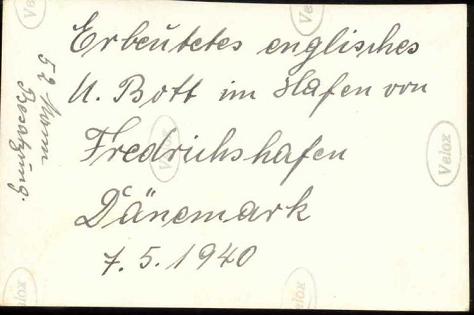 Erbeutetes englisches
U. Bott im Hafen von
Fredrichshafen
Dänemark
7. 5. 1940
52 Mann
Besatzung.
Velox
Velox
Velox
Velox
Velox
Velox